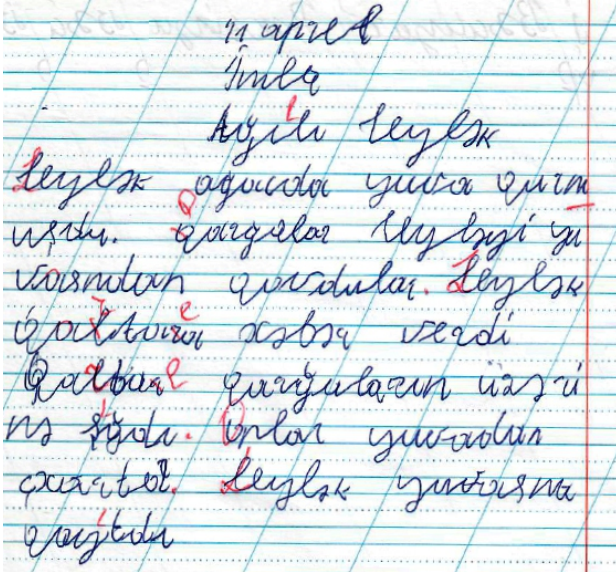 11 aprel
İmla
Ağıllı leylək
Leylək ağacda yuva qurm
uşdu. Qarğalar leyləyi yu
vasından qovdular. Leylək
qartala xəbər verdi
Qartal qarğaların üzəri
nə şığıdı. Onlar yuvadan
çıxartdı. Leylək yuvasına
qayıtdı